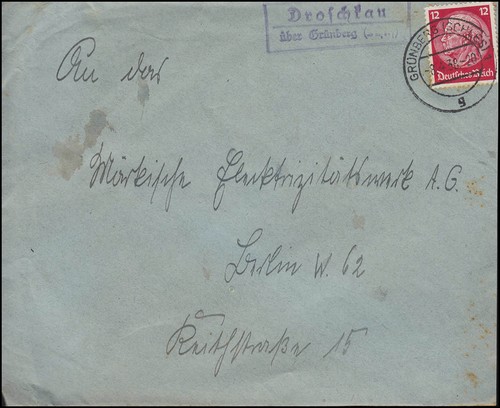 Droschkau
über Grünberg (Schles)
12 12
Deutsches Reich
GRÜNBERG (SCHLES)
g
An das
Märkische Elektrizitätswerk A.G.
Berlin W. 62
Keithstraße 15